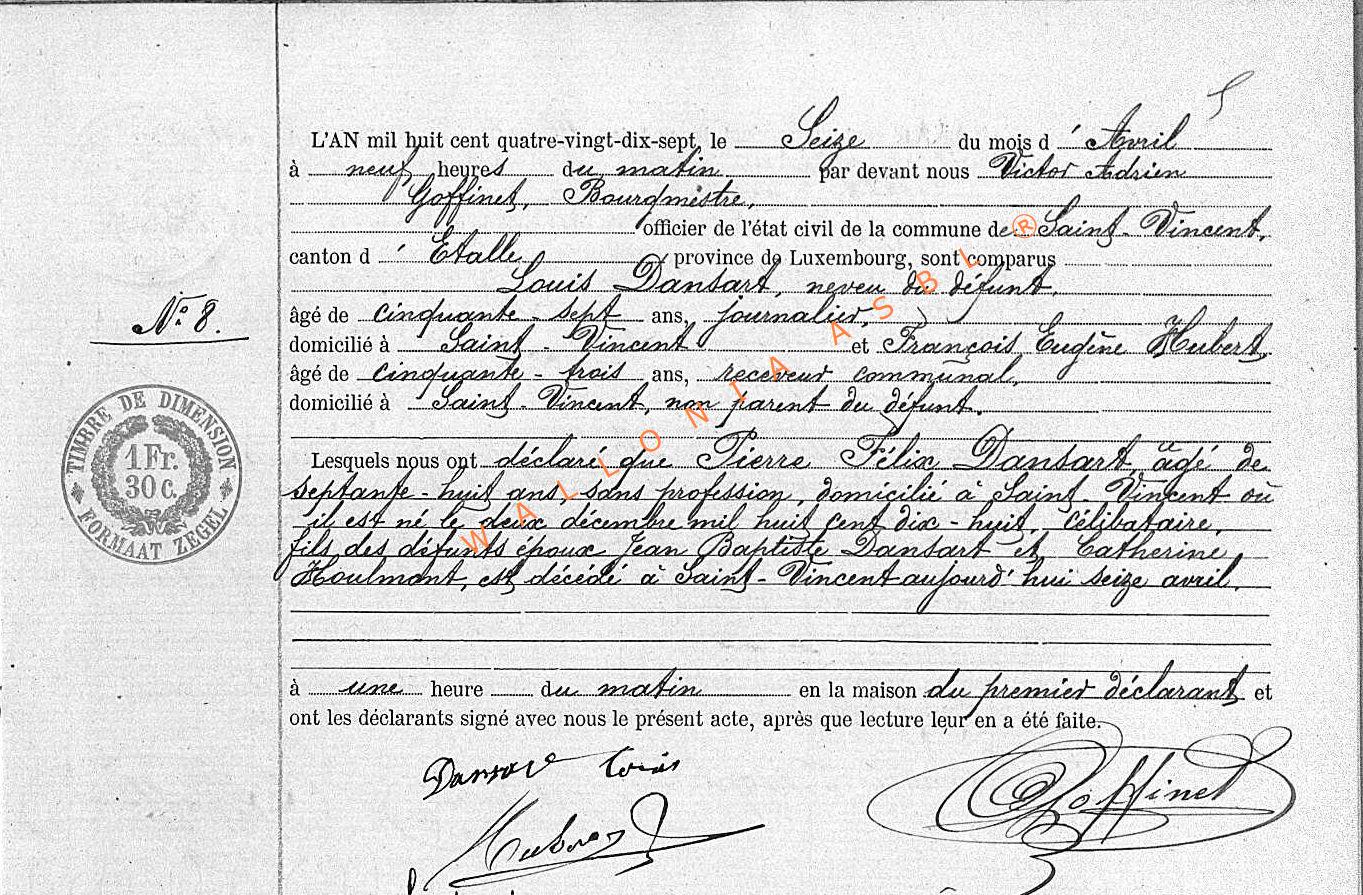 L'AN mil huit cent quatre-vingt-dix-sept, le Seize du mois d' Avril
à neuf heures du matin par devant nous Victor Adrien
Goffinet, Bourgmestre,
officier de l'état civil de la commune de Saint-Vincent,
canton d' Etalle province de Luxembourg, sont comparus
Louis Dansart, neveu du défunt,
âgé de cinquante-sept ans, journalier,
domicilié à Saint-Vincent et François Eugène Hubert,
âgé de cinquante-trois ans, receveur communal,
domicilié à Saint-Vincent, non parent du défunt.
Lesquels nous ont déclaré que Pierre Félix Dansart, âgé de
septante-huit ans, sans profession, domicilié à Saint-Vincent où
il est né le deux décembre mil huit cent dix-huit, célibataire,
fils des défunts époux Jean Baptiste Dansart et Catherine
Houlmont, est décédé à Saint-Vincent aujourd'hui seize avril,
à une heure du matin en la maison du premier déclarant et
ont les déclarants signé avec nous le présent acte, après que lecture leur en a été faite.
Dansart Louis
Hubert
Goffinet
No 8.
TIMBRE DE DIMENSION
1 Fr.
30 c.
FORMAAT ZEGEL
WALLONIA ASBL ®